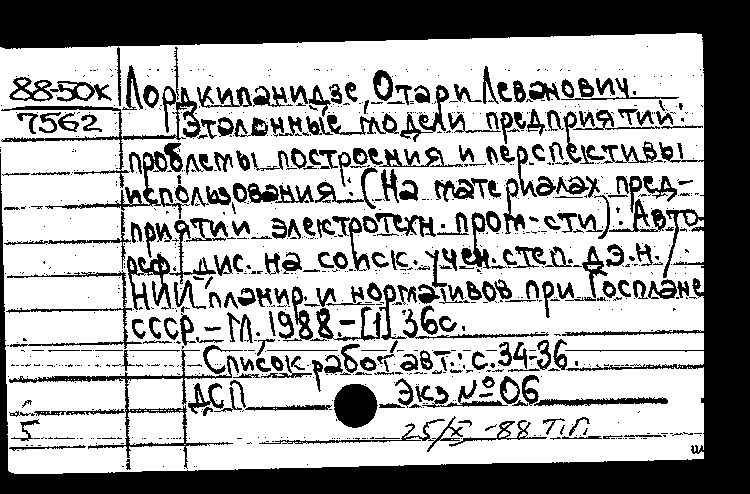 88-50к Лордкипанидзе, Отари Леванович.
7562 Эталонные модели предприятий:
проблемы построения и перспективы
использования: (На материалах пред-
приятий электротехн. пром-сти): Авто-
реф. дис. на соиск. учен. степ. д.э.н. /
НИИ планир. и нормативов при Госплане
СССР. – М. 1988. – [1] 36с.
Список работ авт.: с. 34-36.
ДСП Экз № 06
5 25/X -88 Т.П.